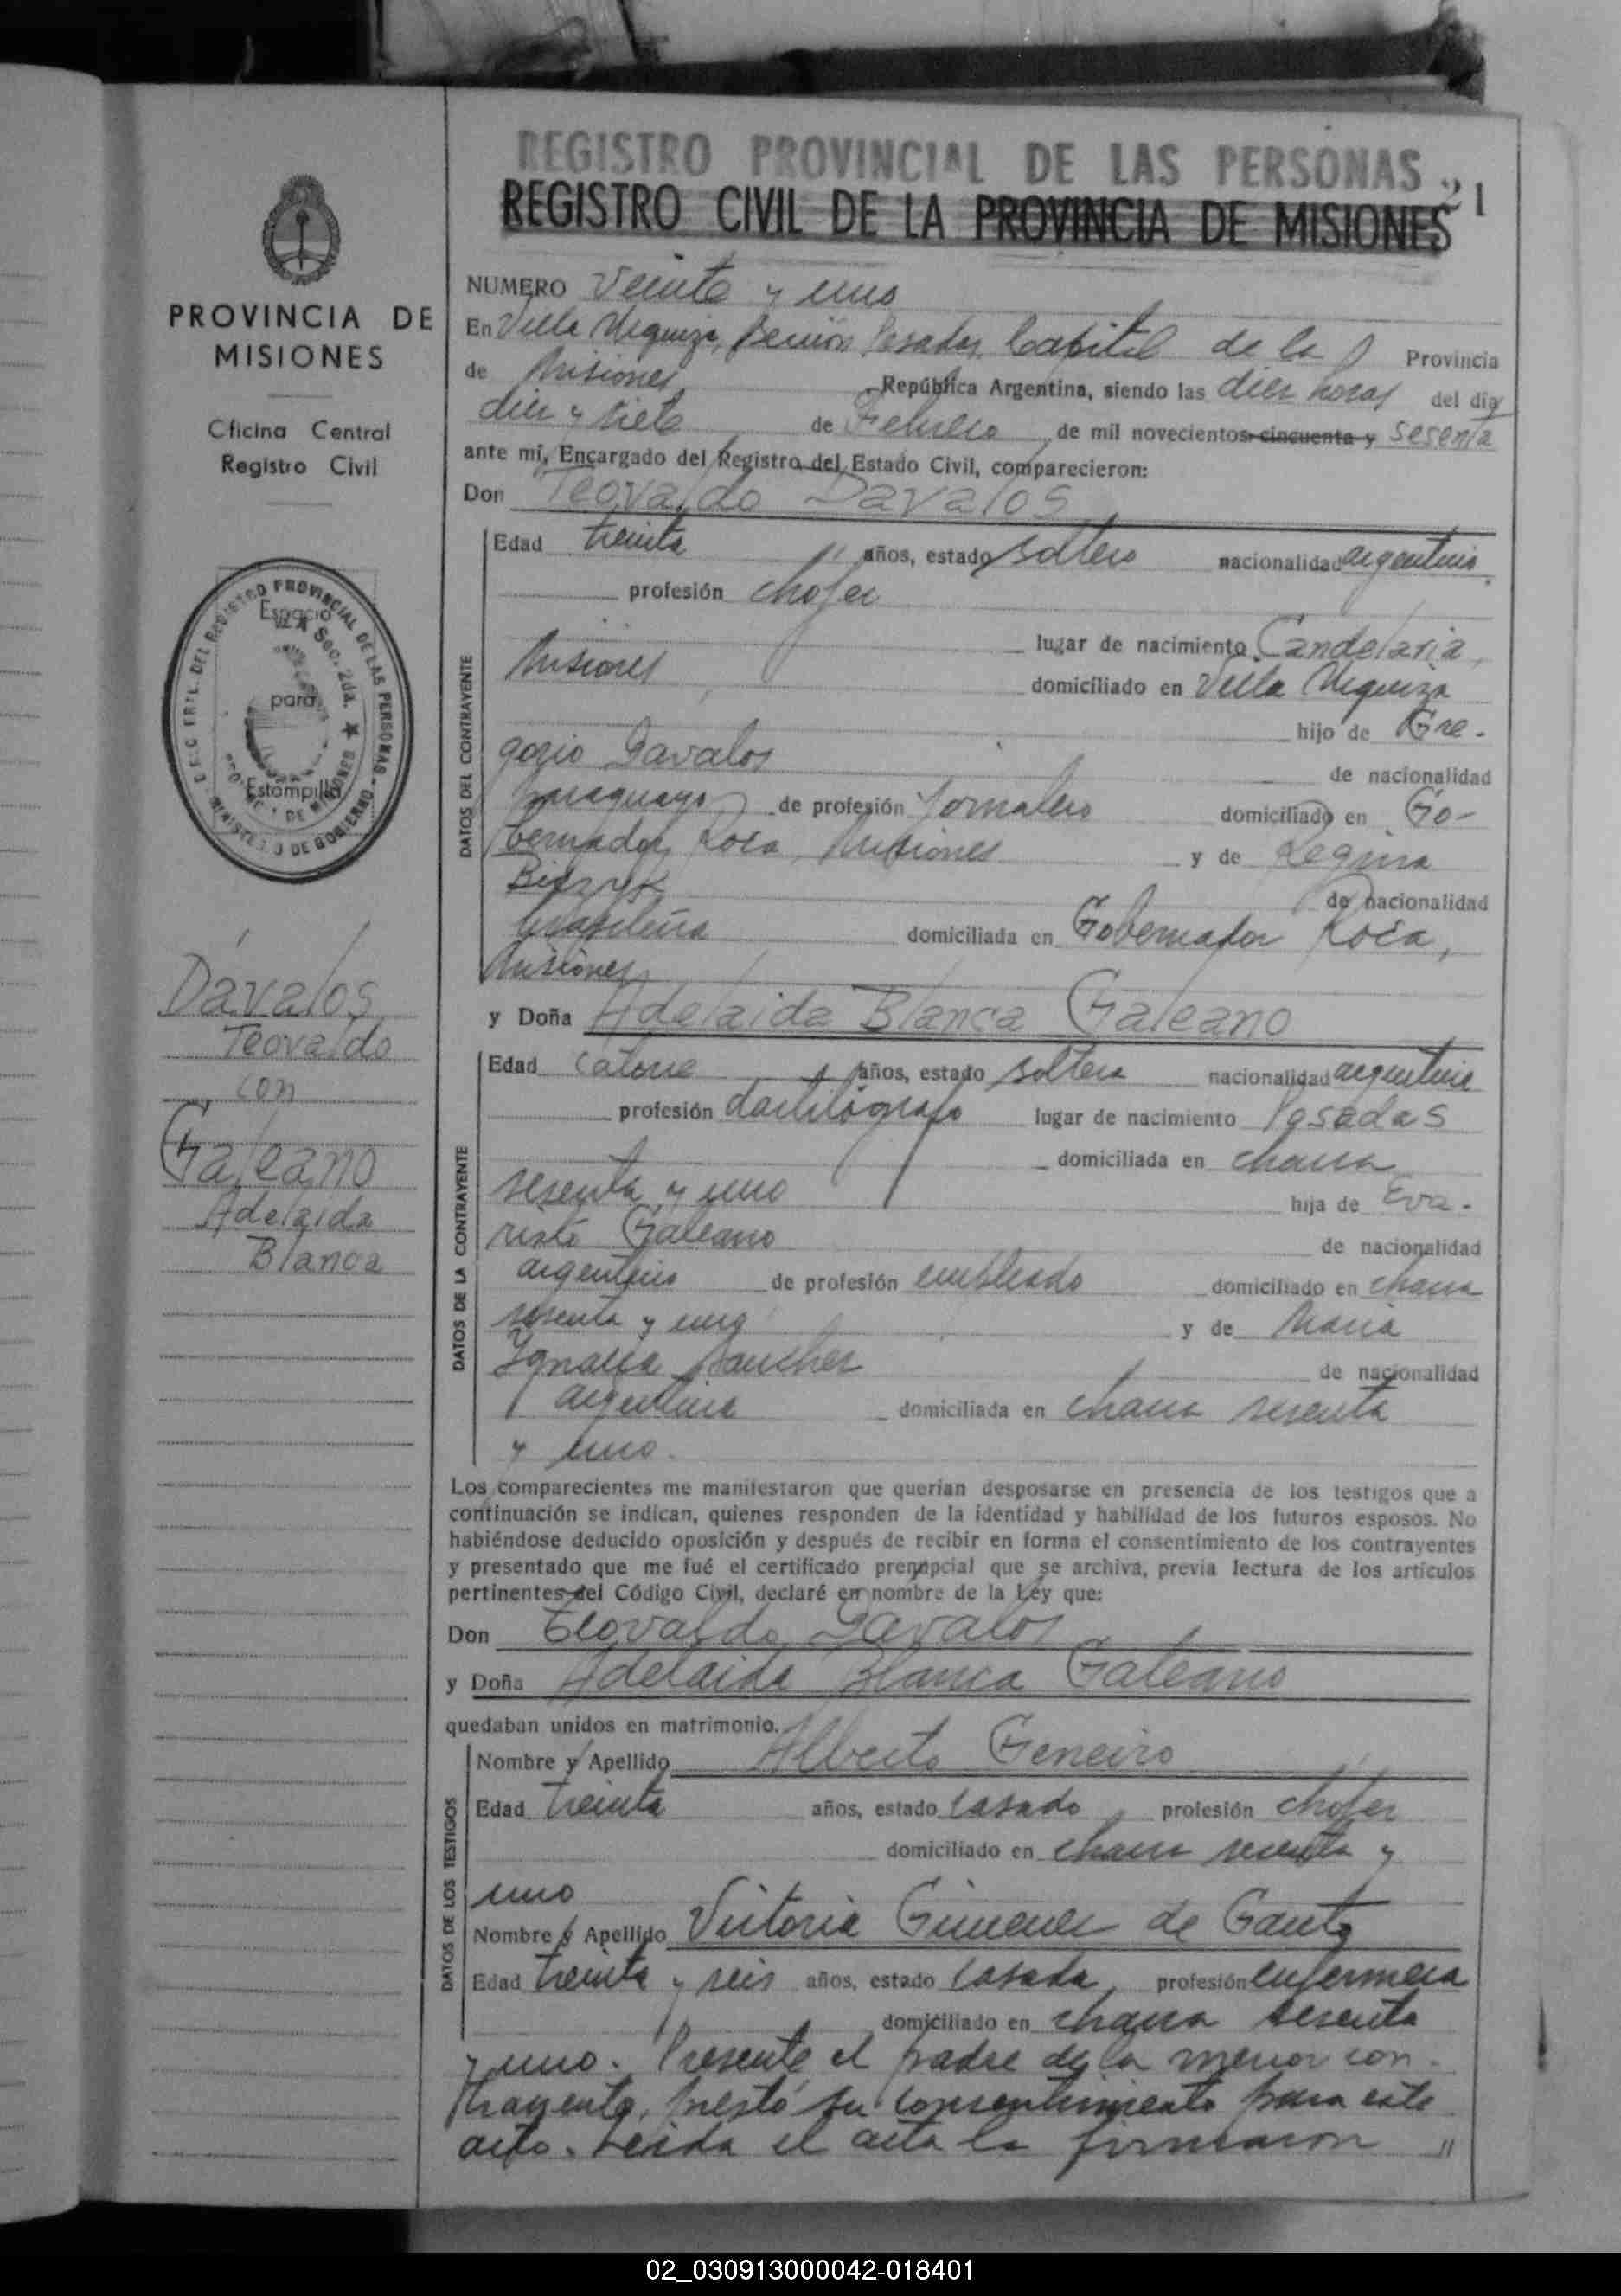 REGISTRO PROVINCIAL DE LAS PERSONAS
REGISTRO CIVIL DE LA PROVINCIA DE MISIONES
21
PROVINCIA DE
MISIONES
Oficina Central
Registro Civil
Espacio
para
Estampilla
Dávalos
Teovaldo
con
Galeano
Adelaida
Blanca
NUMERO Veinte y uno
En Villa Urquiza, Posadas, Capital de la Provincia
de Misiones, República Argentina, siendo las diez horas del día
diez y siete de Febrero de mil novecientos cincuenta y sesenta
ante mí, Encargado del Registro del Estado Civil, comparecieron:
Don Teovaldo Davalos
DATOS DEL CONTRAYENTE
Edad treinta años, estado soltero nacionalidad argentino
profesión chofer
lugar de nacimiento Candelaria,
Misiones domiciliado en Villa Urquiza
hijo de Gre-
gorio Davalos de nacionalidad
paraguayo de profesión Jornalero domiciliado en Go-
bernador Roca, Misiones y de Regina
de nacionalidad
brasileña domiciliada en Gobernador Roca,
Misiones
y Doña Adelaida Blanca Galeano
DATOS DE LA CONTRAYENTE
Edad catorce años, estado soltera nacionalidad argentina
profesión dactilógrafa lugar de nacimiento Posadas
domiciliada en chacra
sesenta y uno hija de Eva-
risto Galeano de nacionalidad
argentino de profesión empleado domiciliado en chacra
sesenta y uno y de Maria
Ygnacia Sanchez de nacionalidad
argentina domiciliada en chacra sesenta
y uno.
Los comparecientes me manifestaron que querían desposarse en presencia de los testigos que a
continuación se indican, quienes responden de la identidad y habilidad de los futuros esposos. No
habiéndose deducido oposición y después de recibir en forma el consentimiento de los contrayentes
y presentado que me fué el certificado prenupcial que se archiva, previa lectura de los artículos
pertinentes del Código Civil, declaré en nombre de la Ley que:
Don Teovaldo Davalos
y Doña Adelaida Blanca Galeano
quedaban unidos en matrimonio.
DATOS DE LOS TESTIGOS
Nombre y Apellido Alberto Geneiro
Edad treinta años, estado casado, profesión chofer
domiciliado en chacra sesenta y
uno
Nombre y Apellido Victoria Gimenez de Gauto
Edad treinta y seis años, estado casada, profesión enfermera
domiciliado en chacra sesenta
y uno. Presente el padre de la menor con-
trayente, prestó su consentimiento para este
acto. Leida el acta la firmaron "
02_030913000042-018401